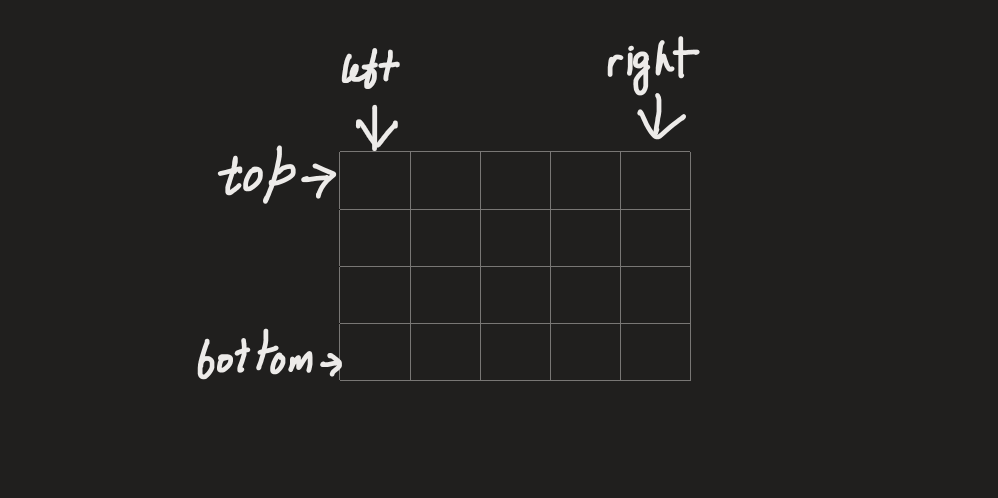 left
right
top
bottom